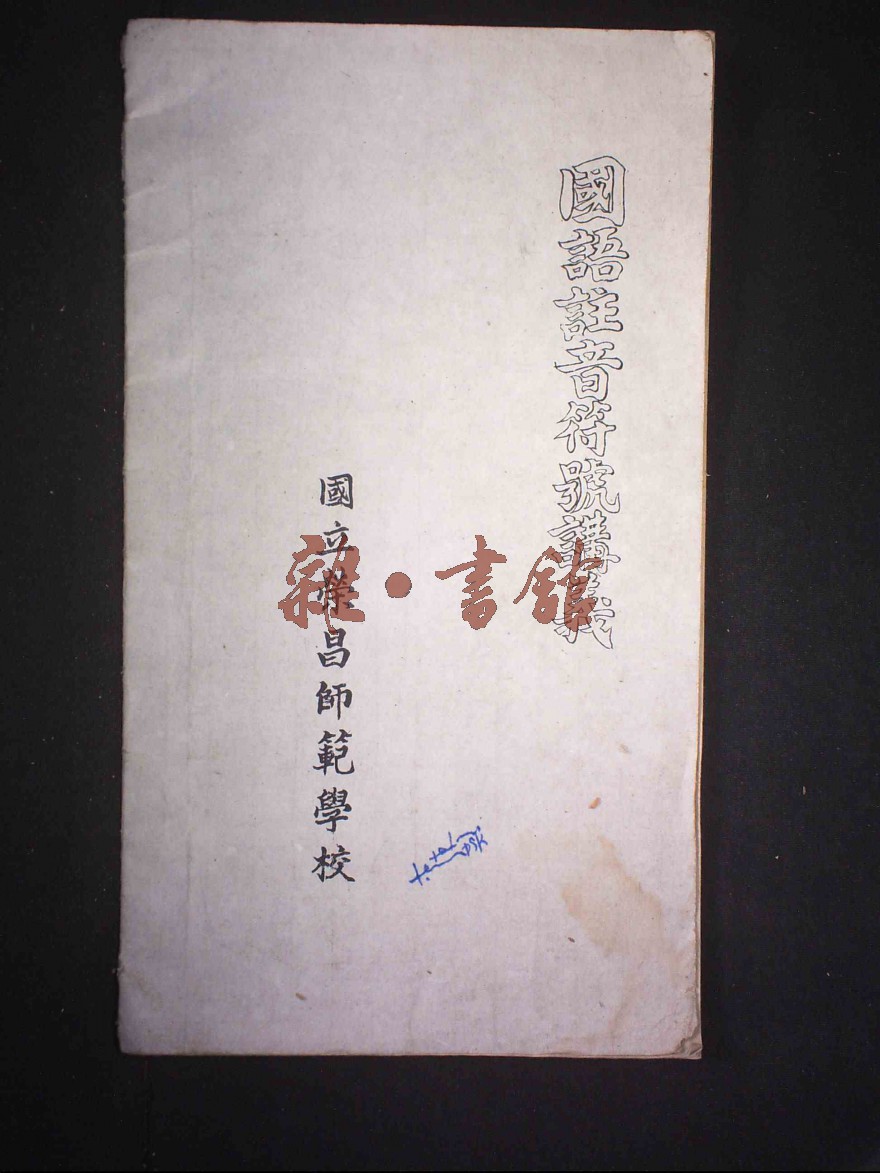 國語註音符號講義
國立榮昌師範學校
雜·書館